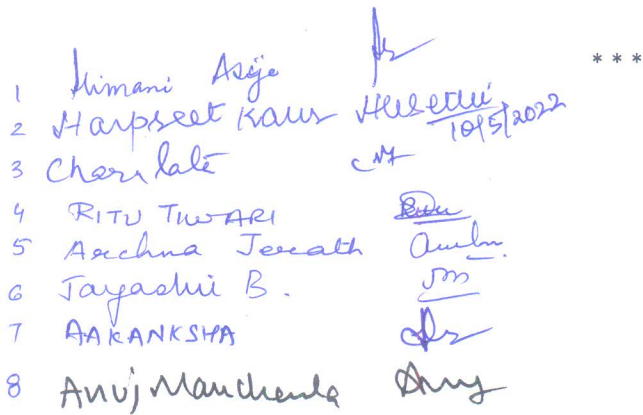 * * *
1 Himani
2 Harpreet Kaur 10/5/2022
3 Charu lata
4 RITU TIWARI
5 Archna Jerath
6 Jayashri B.
7 AAKANKSHA
8 Anuj Manchanda